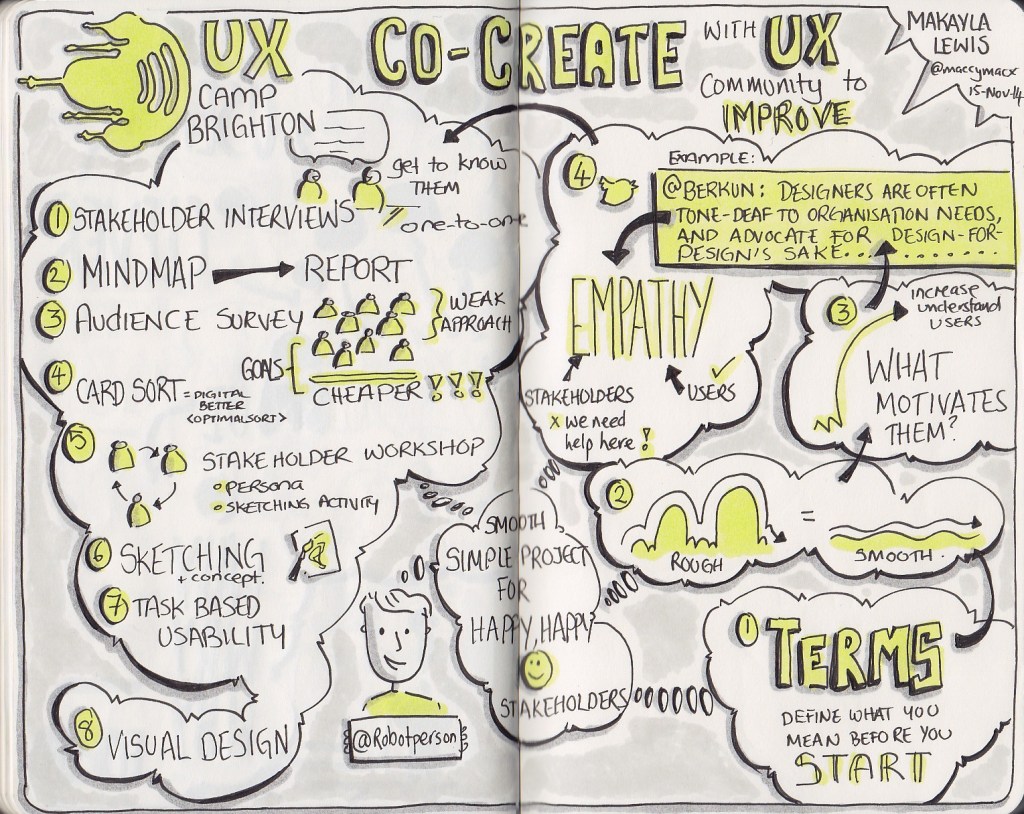 UX
CAMP
BRIGHTON
CO-CREATE WITH UX
Community to
IMPROVE
MAKAYLA
LEWIS
@maccymacx
15-Nov-14
get to know
THEM
one-to-one
1 STAKEHOLDER INTERVIEWS
2 MINDMAP REPORT
3 AUDIENCE SURVEY
WEAK
APPROACH
GOALS
CHEAPER !!!
4 CARD SORT = DIGITAL
BETTER
<OPTIMALSORT>
5 STAKEHOLDER WORKSHOP
PERSONA
SKETCHING ACTIVITY
6 SKETCHING
+ concept.
7 TASK BASED
USABILITY
8 VISUAL DESIGN
@Robotperson
SMOOTH
SIMPLE PROJECT
FOR
HAPPY, HAPPY
STAKEHOLDERS
1 TERMS
DEFINE WHAT YOU
MEAN BEFORE YOU
START
2
ROUGH = SMOOTH.
3 increase
understand
USERS
WHAT
MOTIVATES
THEM?
4 EXAMPLE:
@BERKUN: DESIGNERS ARE OFTEN
TONE-DEAF TO ORGANISATION NEEDS,
AND ADVOCATE FOR DESIGN-FOR-
DESIGN'S SAKE............
EMPATHY
STAKEHOLDERS
x we need
help here!
USERS ✓